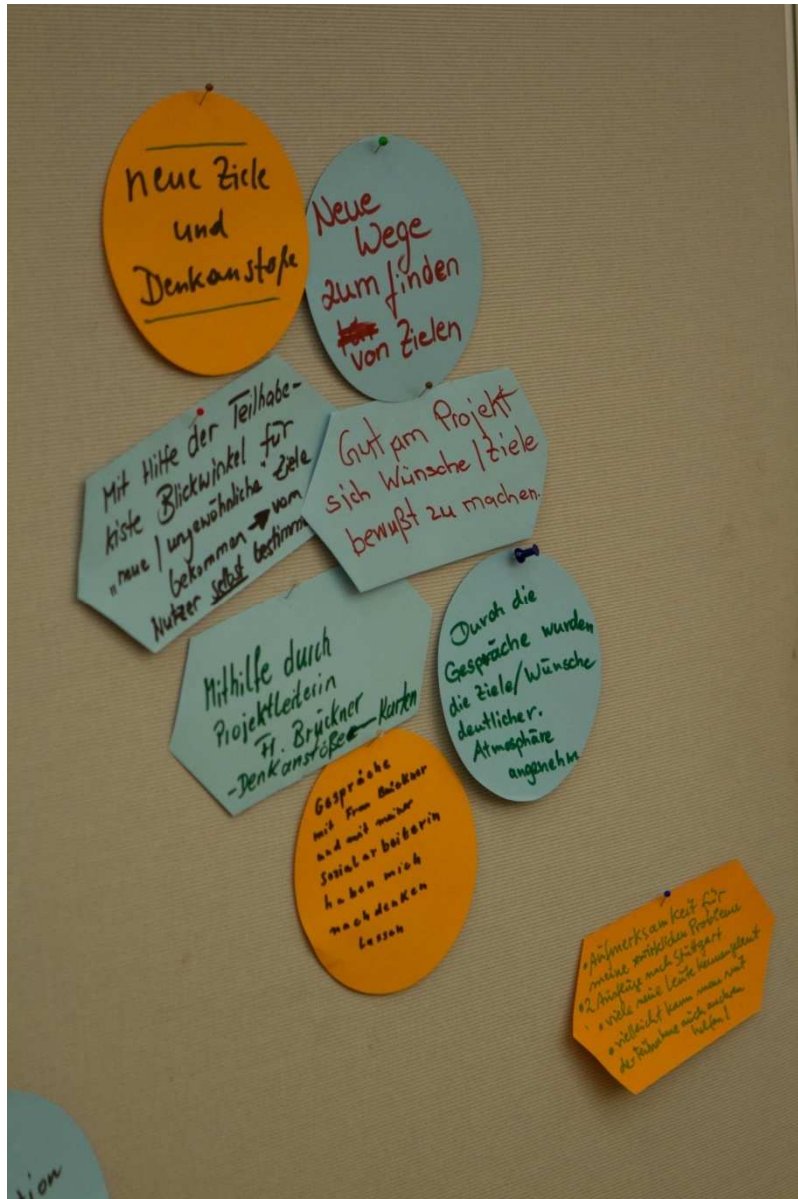 neue Ziele
und
Denkanstöße
Neue
Wege
zum finden
von Zielen
Mit Hilfe der Teilhabe-
kiste Blickwinkel für
"neue / ungewöhnliche" Ziele
bekommen → vom
Nutzer selbst bestimmt
Gut am Projekt
sich Wünsche / Ziele
bewußt zu machen.
Mithilfe durch
Projektleiterin
Fr. Brückner
-Denkanstöße Karten
Durch die
Gespräche wurden
die Ziele/Wünsche
deutlicher.
Atmosphäre
angenehm
Gespräche
mit Frau Brückner
und mit meiner
Sozialarbeiterin
haben mich
nachdenken
lassen
• Aufmerksamkeit für
meine wirklichen Probleme
• 2 Ausflüge nach Stuttgart
• viele neue Leute kennengelernt
• vielleicht kann man mit
der Teilnahme auch anderen
helfen!